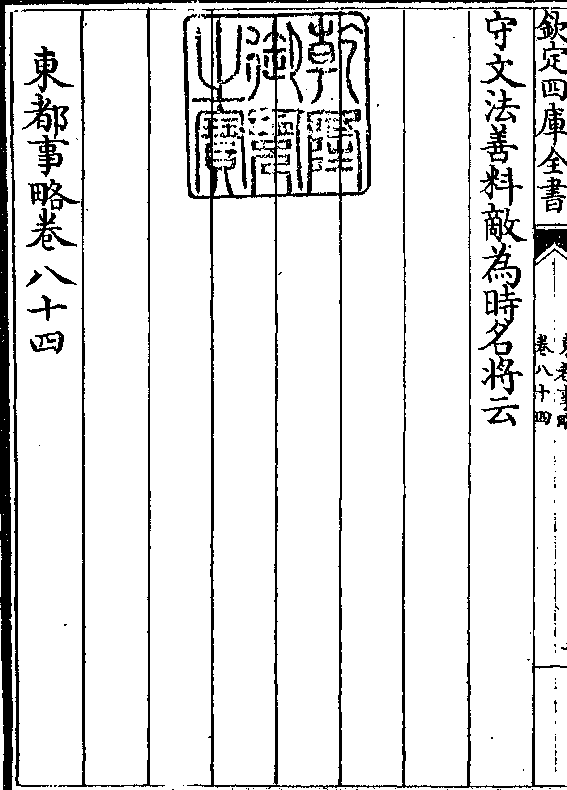 欽定四庫全書
東都事略
卷八十四
守文法善料敵為時名將云
乾隆御覽之寶
東都事略卷八十四